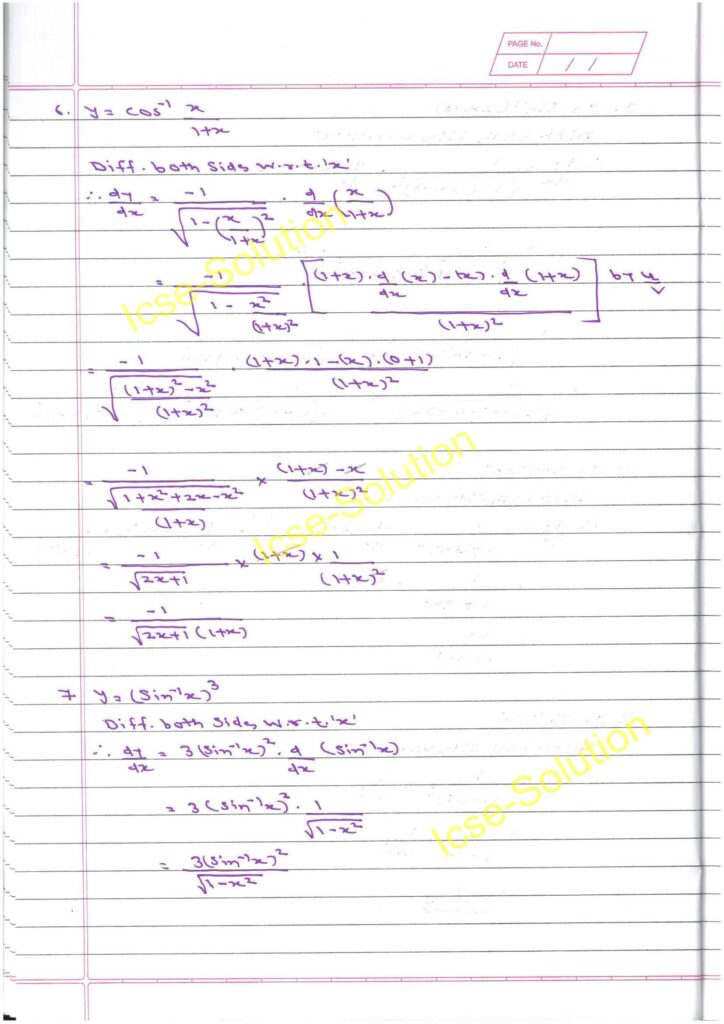 PAGE No.
DATE / /
6. y = cos⁻¹ x/(1+x)
Diff. both sides w.r.t. 'x'
∴ dy/dx = -1/√(1-(x/(1+x))²) · d/dx (x/(1+x))
= -1/√(1 - x²/(1+x)²) · [((1+x) · d/dx (x) - (x) · d/dx (1+x))/(1+x)²] by u/v
= -1/√(((1+x)² - x²)/(1+x)²) · ((1+x) · 1 - (x) · (0+1))/(1+x)²
= -1/(√(1+x²+2x-x²)/(1+x)) × ((1+x) - x)/(1+x)²
= -1/√(2x+1) × (1+x) × 1/(1+x)²
= -1/(√(2x+1) (1+x))
7 y = (sin⁻¹x)³
Diff. both sides w.r.t. 'x'
∴ dy/dx = 3(sin⁻¹x)² · d/dx (sin⁻¹x)
= 3(sin⁻¹x)² · 1/√(1-x²)
= 3(sin⁻¹x)²/√(1-x²)
Icse-Solution
Icse-Solution
Icse-Solution